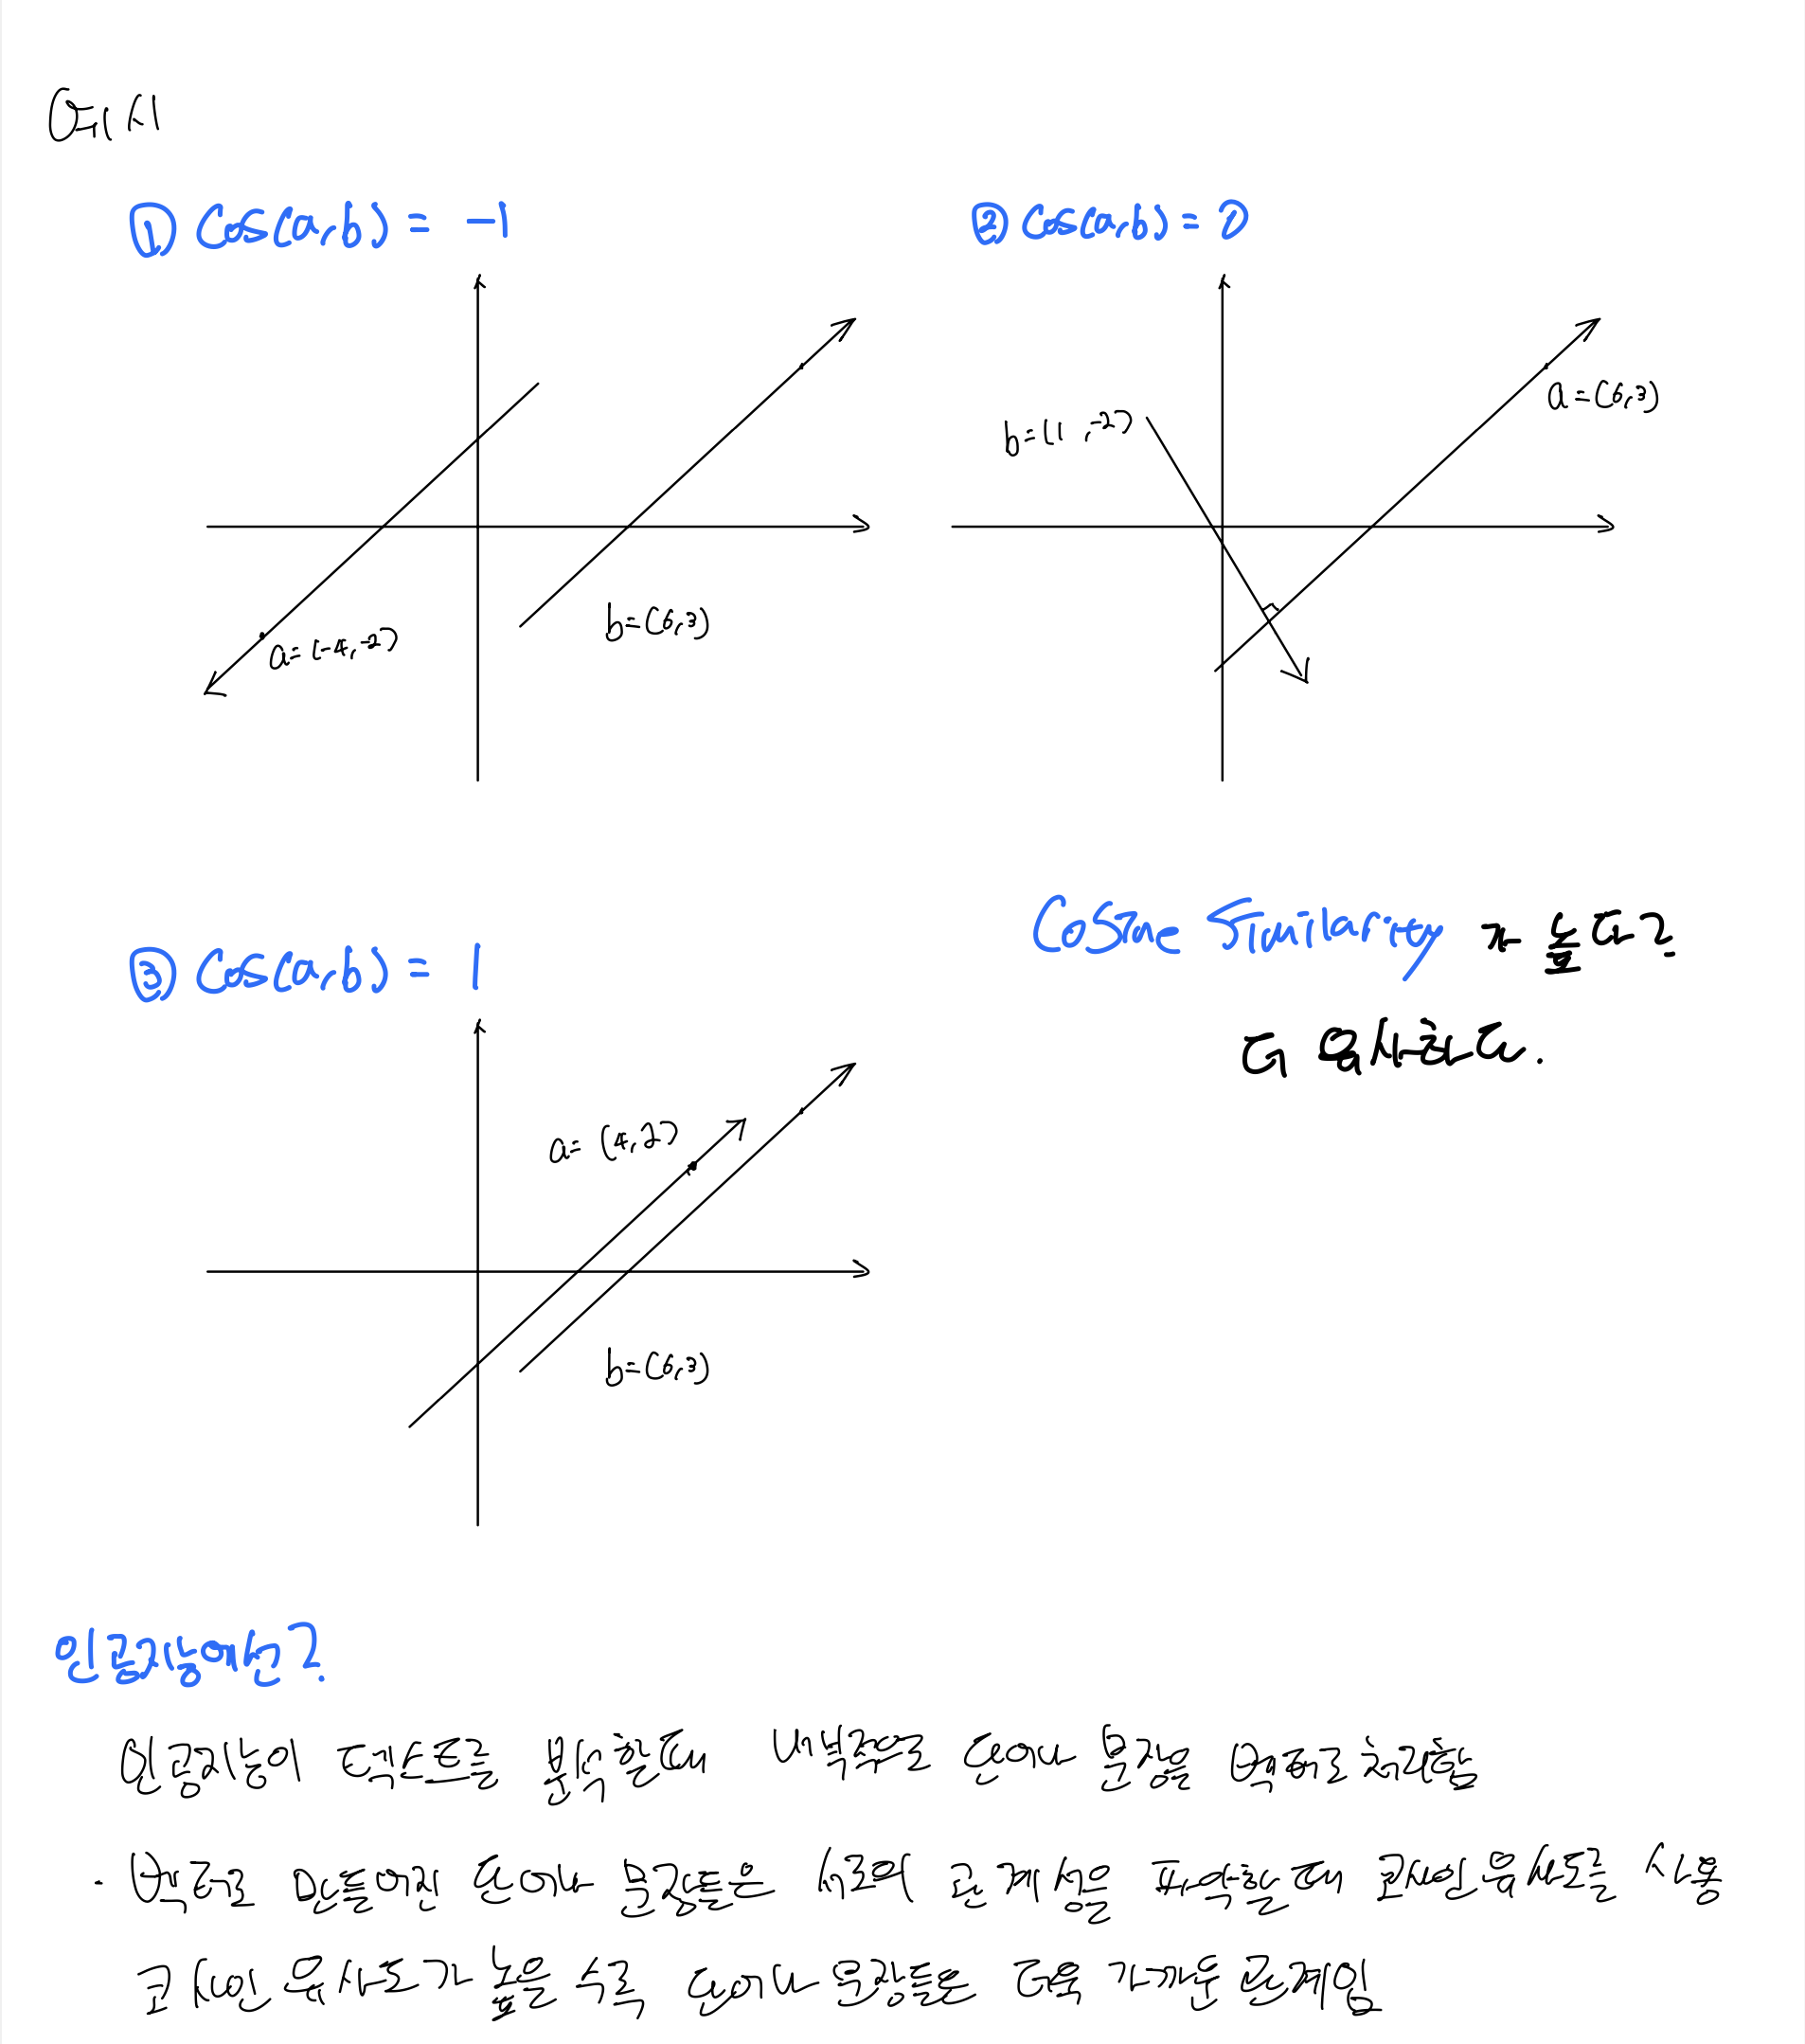 예시
① Cos(a,b) = -1
a=(-4,-2)
b=(6,3)
② Cos(a,b) = 0
b=(1,-2)
a=(6,3)
③ Cos(a,b) = 1
a=(4,2)
b=(6,3)
Cosine Similarity 가 높다?
더 유사하다.
인공지능에선?
인공지능이 텍스트를 분석할때 내부적으로 단어나 문장을 벡터로 처리함
· 벡터로 만들어진 단어나 문장들은 서로의 관계성을 파악할 때 코사인 유사도를 사용
코사인 유사도가 높을 수록 단어나 문장들은 더욱 가까운 관계임